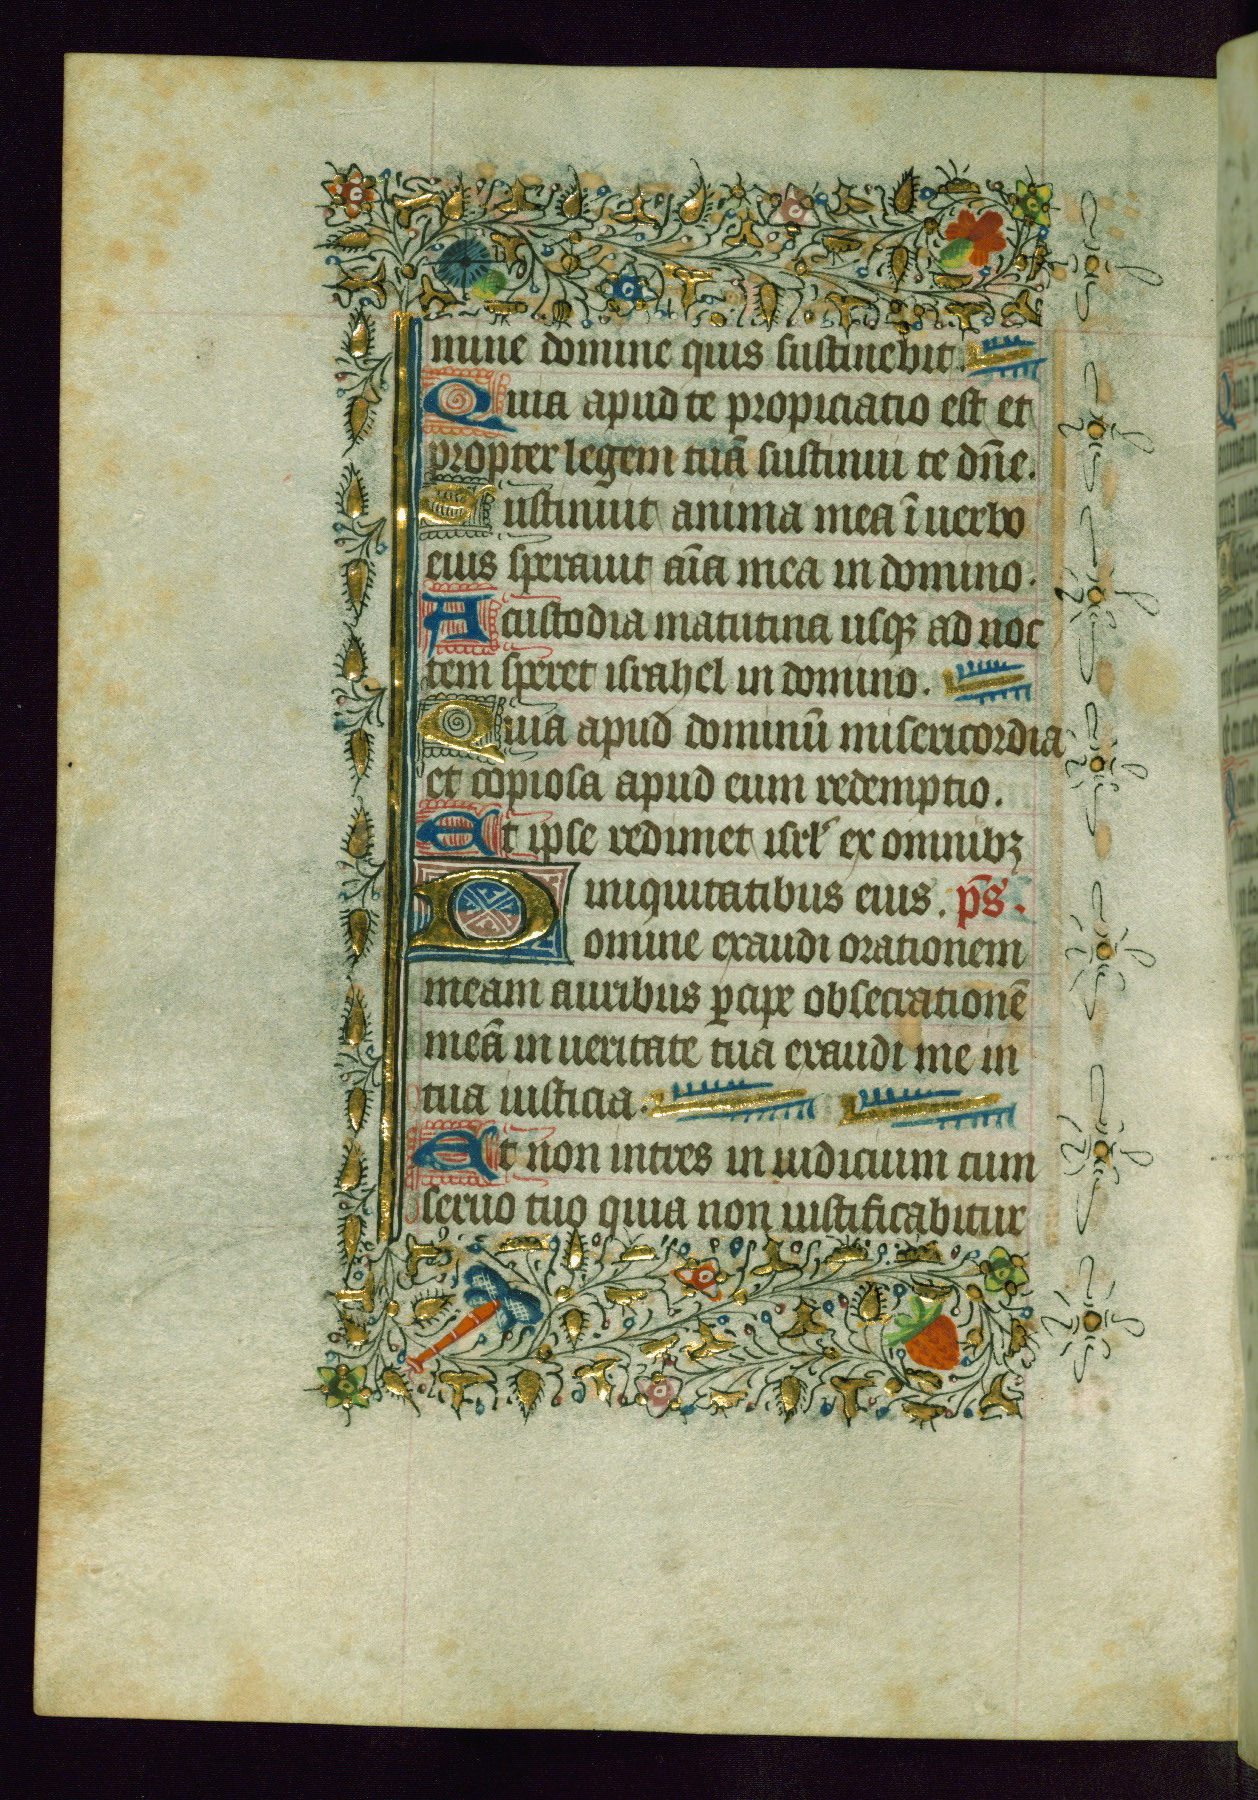 mine domine quis sustinebit.
Quia apud te propiciatio est et
propter legem tuā sustinui te dn̄e.
Sustinuit anima mea ī uerbo
eius sperauit aīa mea in domino.
A custodia matutina usqꝫ ad noc
tem speret israhel in domino.
Quia apud dominū misericordia
et copiosa apud eum redemptio.
Et ipse redimet isrl̄ ex omnibꝫ
iniquitatibus eius. p̄s.
Domine exaudi orationem
meam auribus ꝑcipe obsecrationē
meā in ueritate tua exaudi me in
tua iusticia.
Et non intres in iudicium cum
seruo tuo quia non iustificabitur